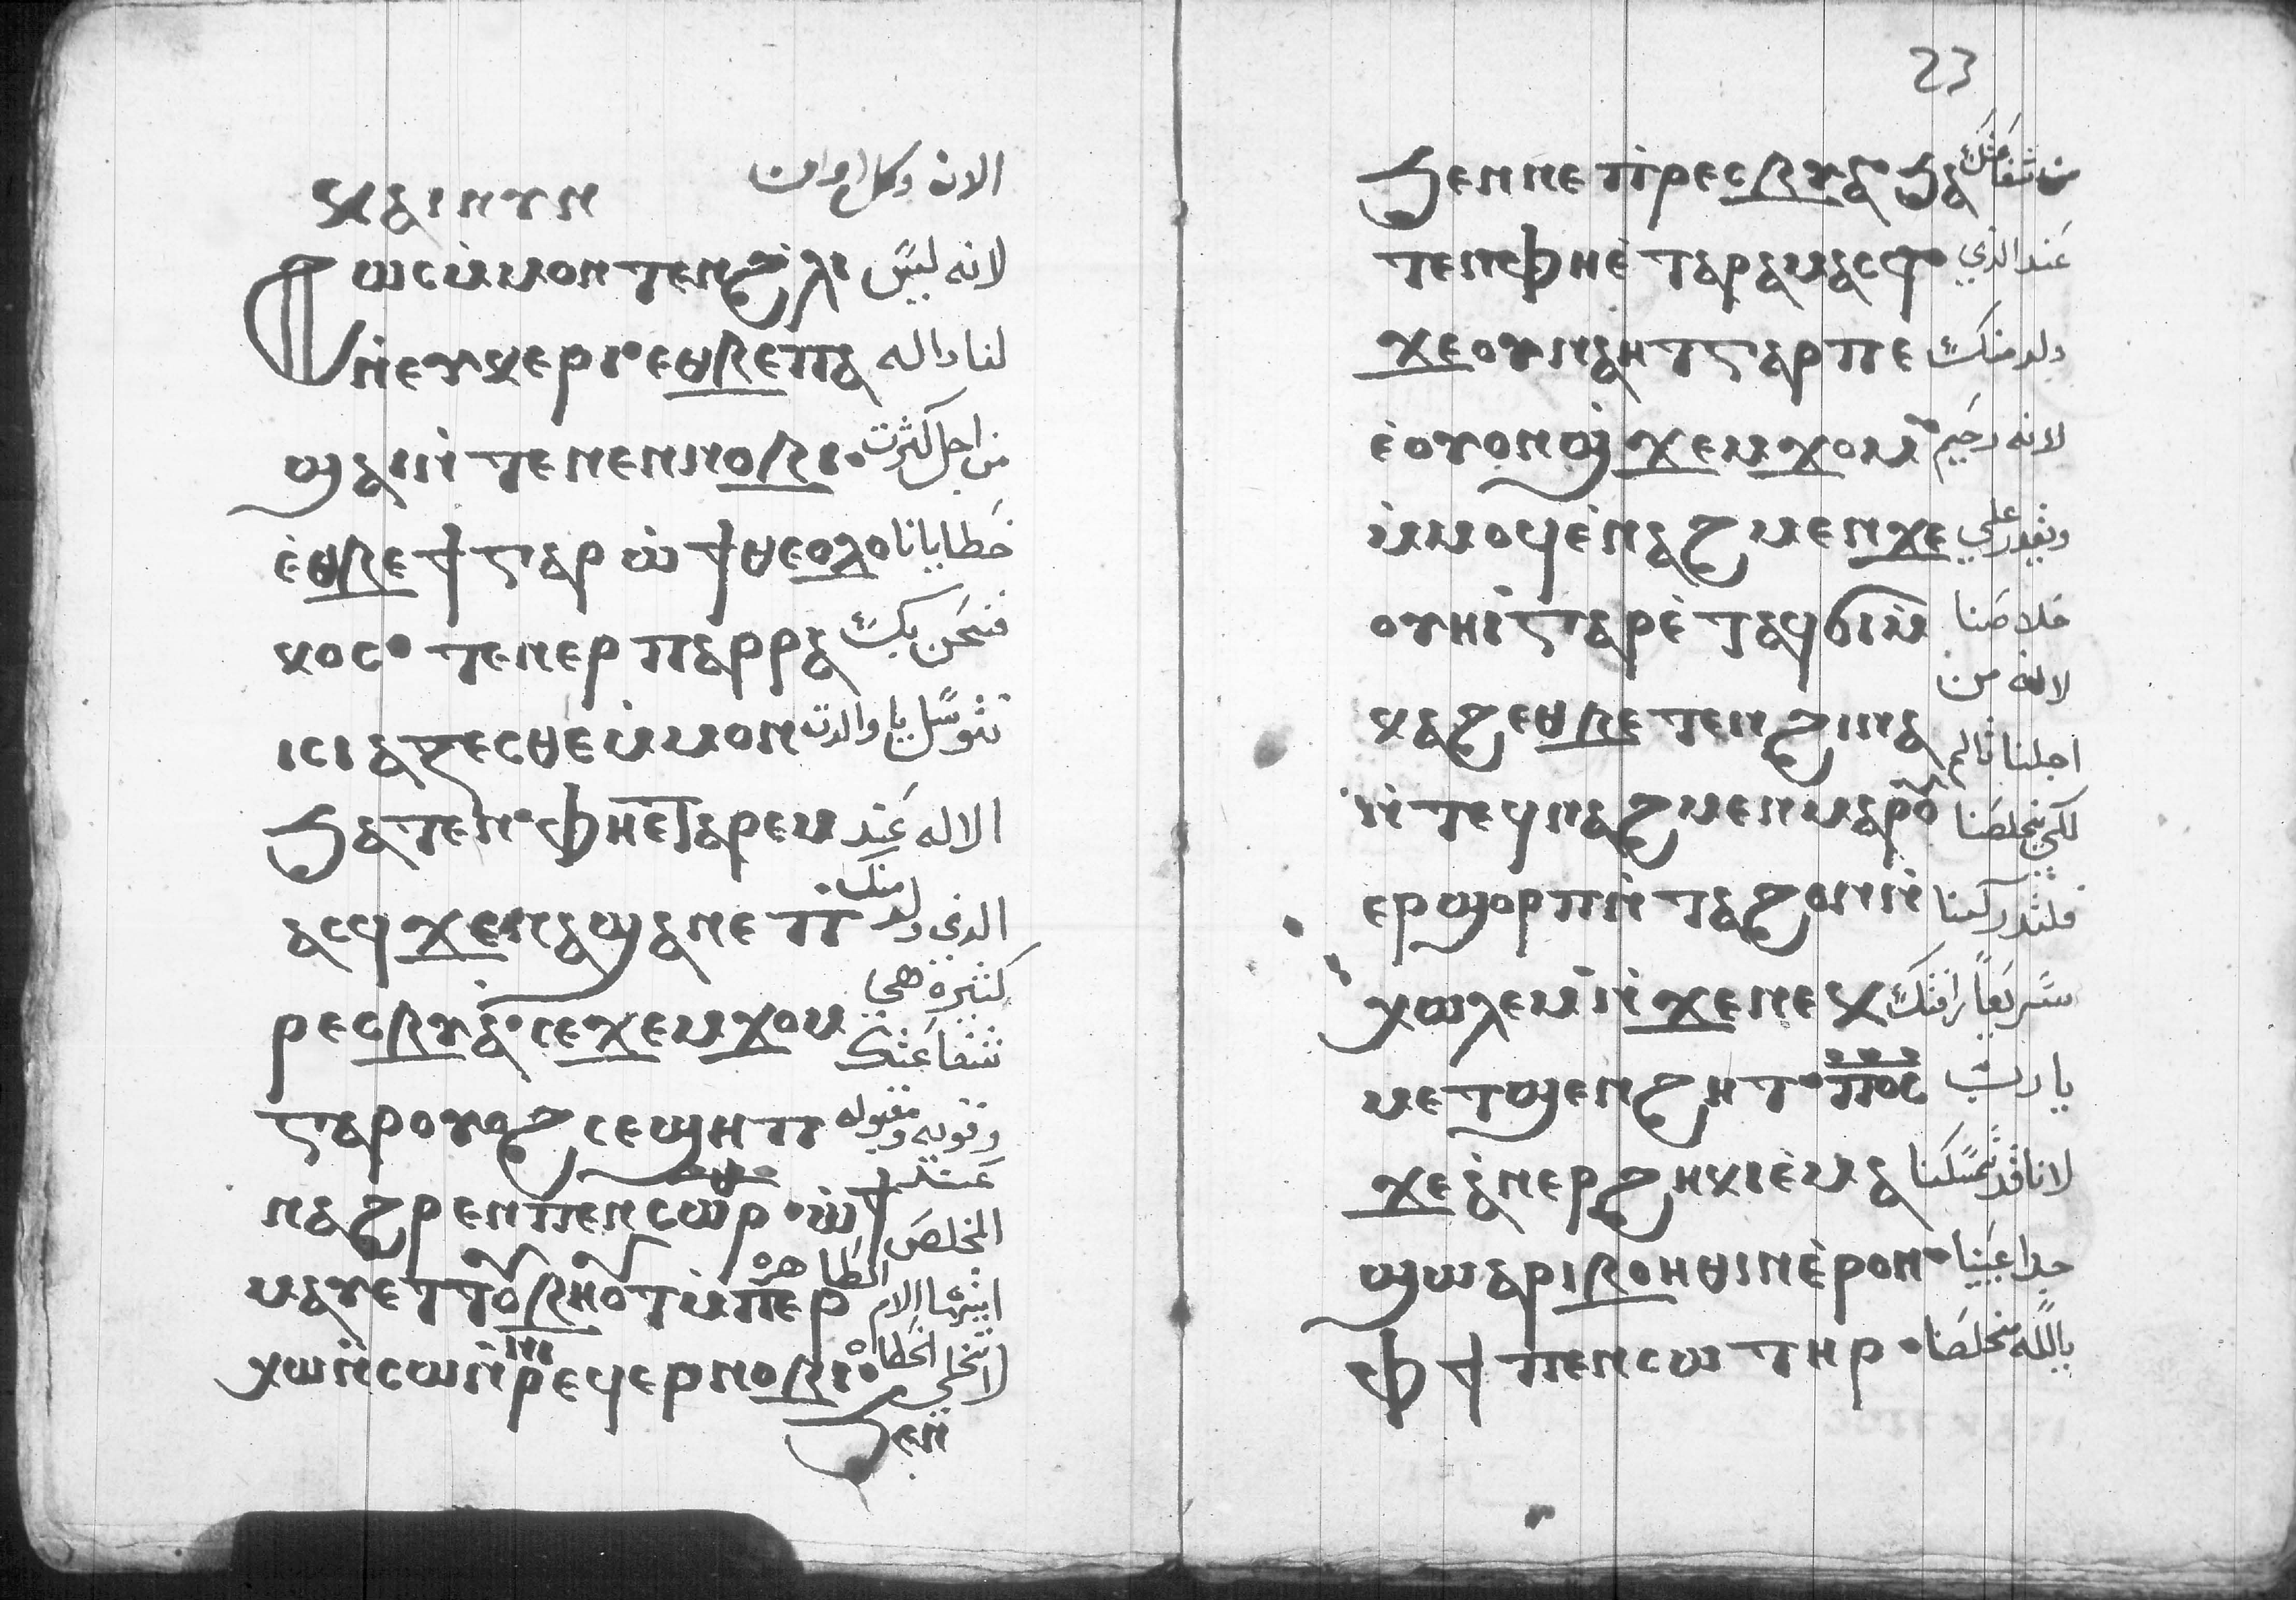 ⲕⲁⲓⲛⲩⲛ الان وكل اوان
ⲱⲥⲙ̀ⲙⲟⲛ ⲧⲉⲛϩ̀ⲗⲓ لانه ليس
ⲛ̀ⲉⲩⲕⲉⲣⲓ · ⲉⲑⲃⲉ ⲡⲁ لنا داله
ϣⲁⲓⲛ̀ ⲧⲉ ⲛⲉⲛⲛⲟⲃⲓ · من اجل كثرت
ⲉ̀ⲑⲃⲉϯ ⲅⲁⲣ ⲱ̀ ϯⲑⲉⲟⲗⲟ خطايانا
ⲕⲟⲥ · ⲧⲉⲛⲉⲣ ⲡⲁⲣⲣⲁ فنحن بك
ⲓⲥⲓⲁⲍⲉⲥⲑⲉ ⲙ̀ⲙⲟⲛ نتوسل يا والدت
ϧⲁⲧⲉⲛ · ⲫⲏⲉⲧⲁⲣⲉⲙ الاله عند
ⲁⲥϥ ϫⲉⲛⲁϣⲁⲛⲉ ⲡ الذي ولد منك
ⲣⲉⲥⲃⲩⲁ · ⲥⲉϫⲉⲙϫⲟⲙ كثيرة هي شفاعتك
ⲅⲁⲣ ⲟⲩⲟϩ ⲥⲉϣⲏⲡ وقويه ومقبوله
ⲛⲁϩⲣⲉⲛ ⲡⲉⲛⲥⲱⲣ · ⲱ̀ϯ عند المخلص
ⲙⲁⲩ ⲉⲧⲧⲟⲩⲃⲏⲟⲩⲧ ⲙ̀ⲡⲉⲣ ايتها الام الطاهره
ⲭⲱⲛ̀ⲥⲱⲛ̀ⲣⲉϥⲉⲣⲛⲟⲃⲓ · لا تتخلي الخطاه
ϧⲉⲛ
23
ϧⲉⲛ ⲛⲉ ⲡ̀ⲣⲉⲥⲃⲩⲁ · ϧⲁ من شفاعتك
ⲧⲉⲛ ⲫⲏⲉ̀ⲧⲁⲣⲁⲙⲁⲥϥ · عند الذي
ϫⲉ ⲟⲩⲛⲁⲏⲧ ⲅⲁⲣ ⲡⲉ ولد منك
ⲉ̀ⲟⲩⲟⲛϣ̀ϫⲉⲙϫⲟⲙ لانه رحيم
ⲙ̀ⲙⲟϥ ⲉ̀ⲛⲁϩⲙⲉⲛ ϫⲉ ويقدر علي
ⲟⲩⲏⲓ ⲅⲁⲣ ⲉ̀ⲧⲁϥϭⲓⲙ̀ خلاصنا لانه من
ⲕⲁϩ ⲉⲑⲃⲉⲧⲉⲛ ϩⲓⲛⲁ اجلنا تالم
ⲛ̀ⲧⲉϥⲛⲁϩⲙⲉⲛ ⲙⲁⲣⲟⲩ لكي يخلصنا
ⲉⲣϣⲟⲣⲡ ⲛ̀ⲧⲁϩⲟⲛ ⲛ̀ فلتدركنا
ⲭⲱⲗⲉⲙ ⲛ̀ϫⲉ ⲛⲉⲕ سريعاً رافتك
ⲙⲉⲧϣⲉⲛϩⲏⲧ · ⲡⲟⲥ يا رب
ϫⲉ ⲁ̀ⲛⲉⲣϩⲏⲕⲓ ⲉ̀ⲙⲁ لاننا قد تمسكنا
ϣⲱ ⲁⲣⲓⲃⲟⲏⲑⲓⲛ ⲉ̀ⲣⲟⲛ · جدا عينا
ⲫϯ ⲡⲉⲛⲥⲱⲧⲏⲣ · ياالله مخلصنا